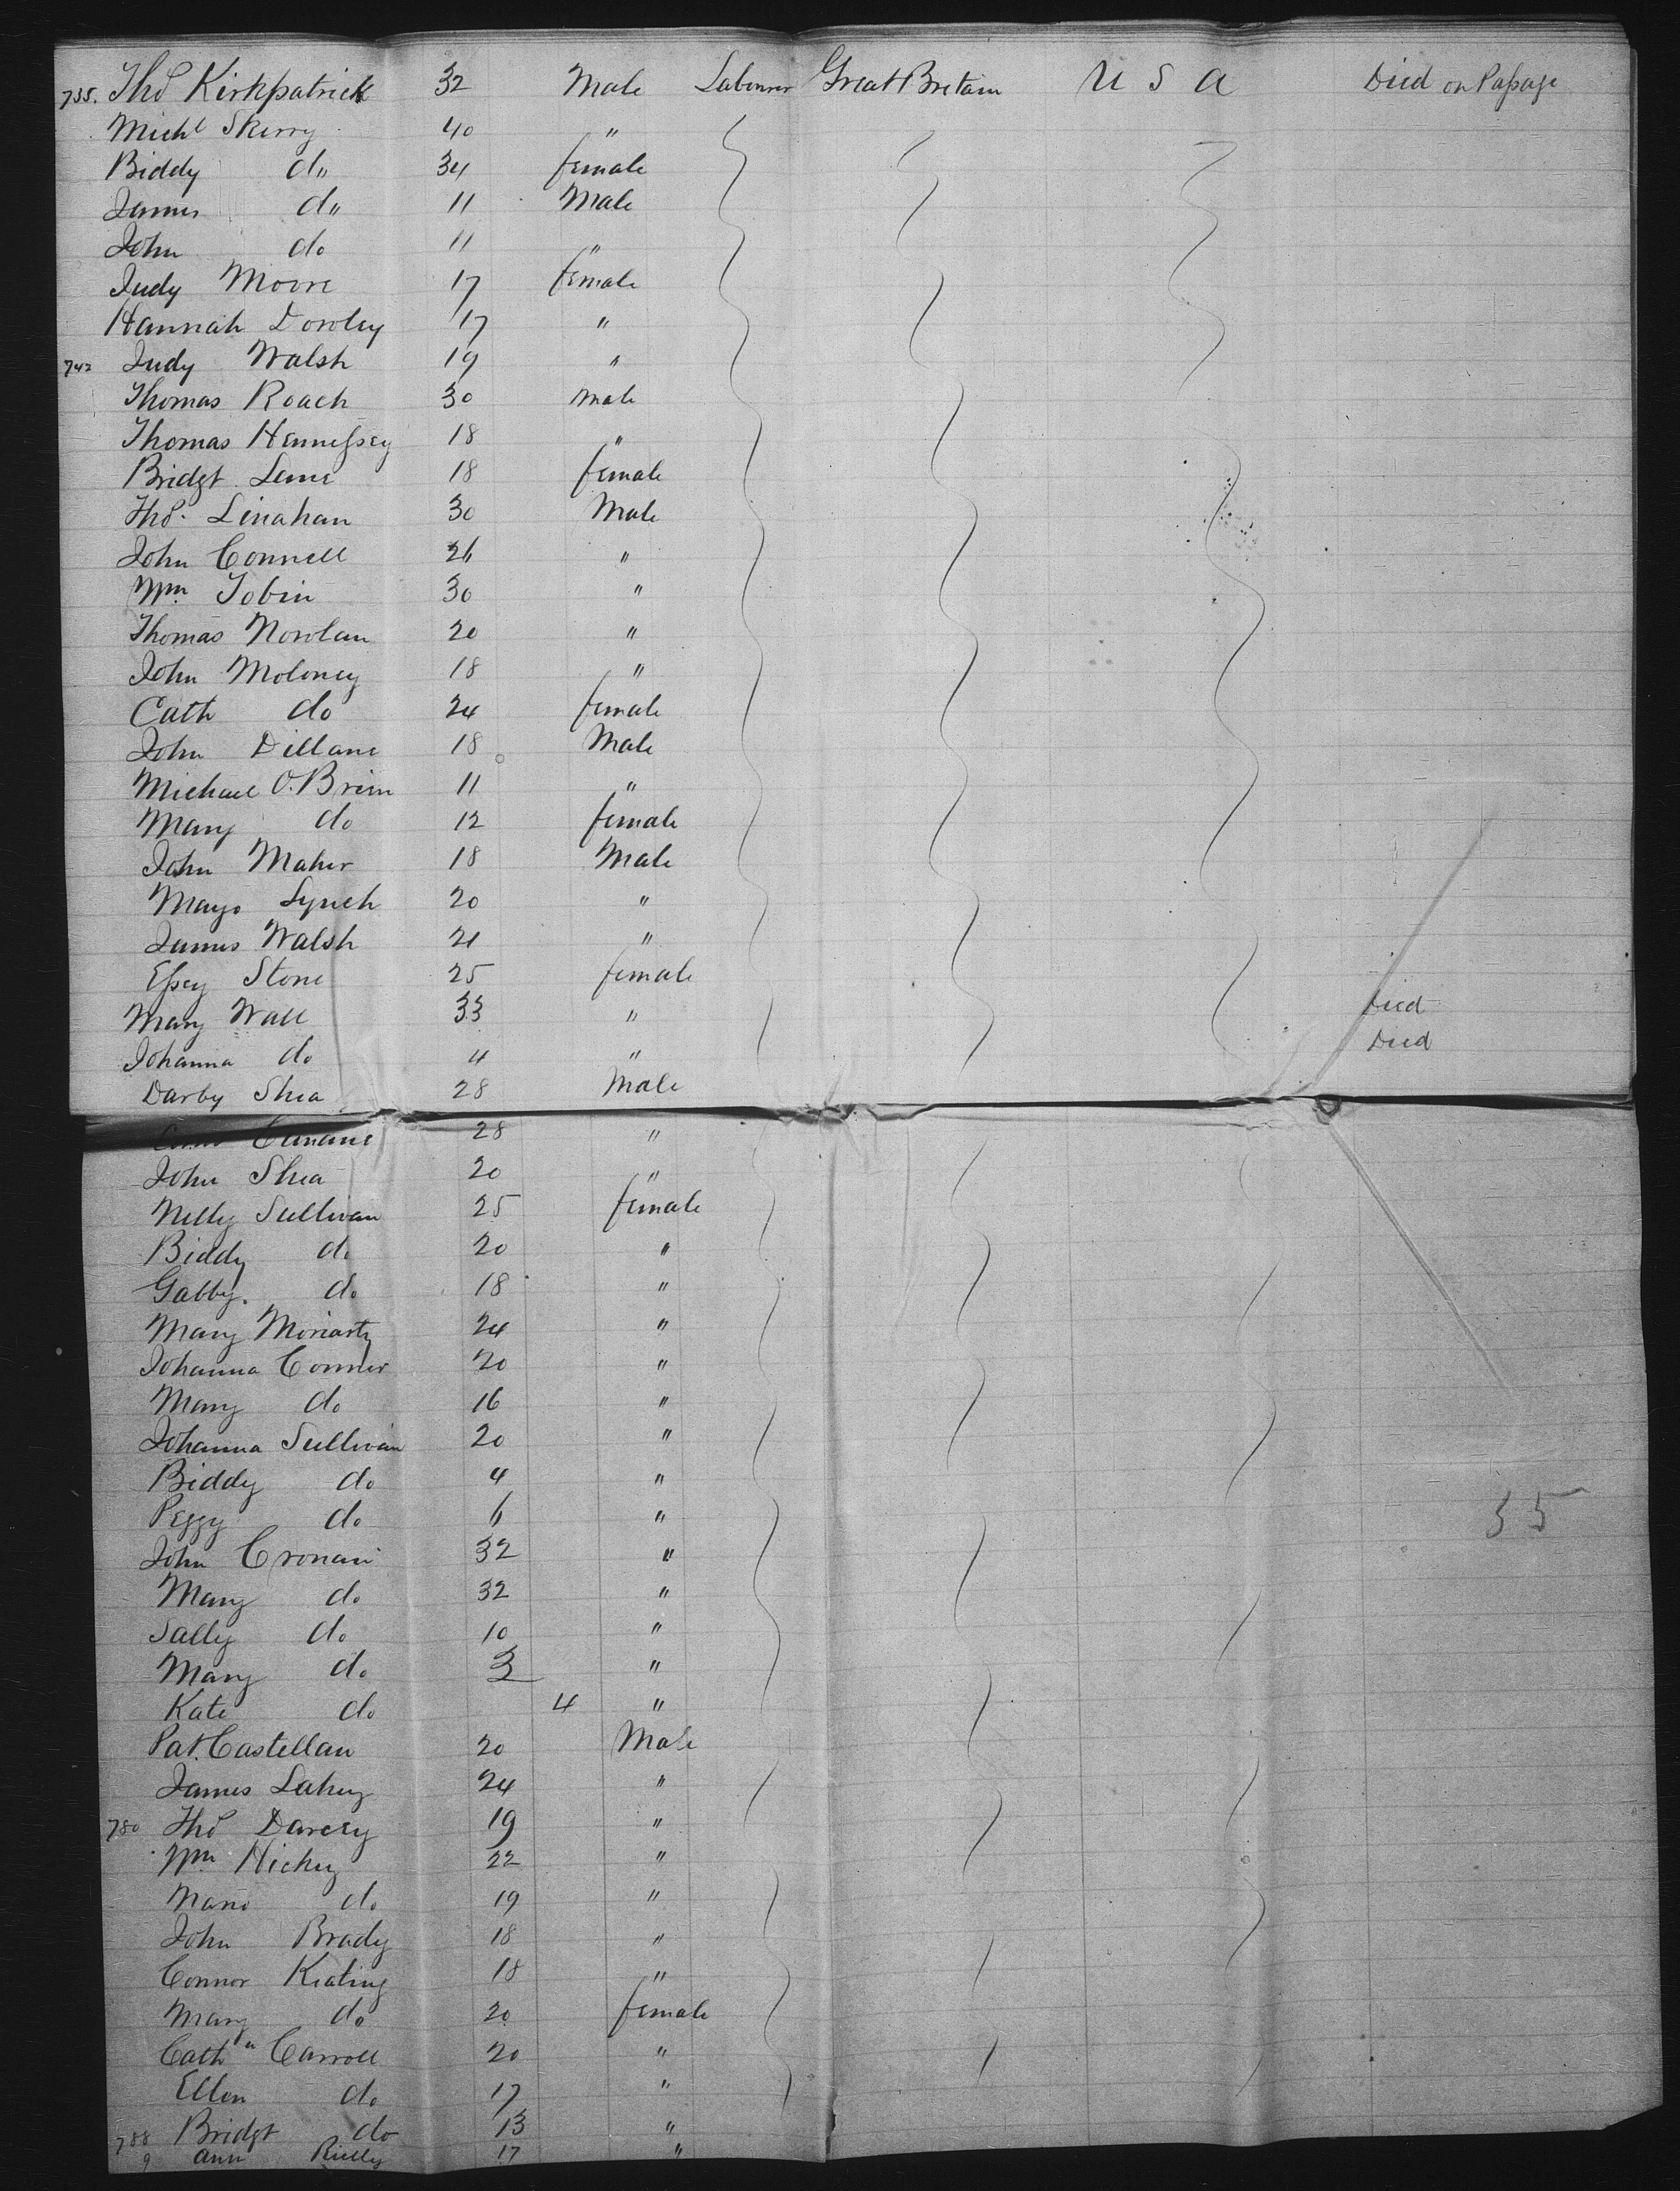 735. Thos Kirkpatrick 32 Male Labourer Great Britain U S A Died on Passage
Michl Skerry 40 "
Biddy do 34 female
James do 11 Male
John do 11 "
Judy Moore 17 female
Hannah Dowley 17 "
742 Judy Walsh 19 "
Thomas Roach 30 male
Thomas Hennessey 18 "
Bridgt Lane 18 female
Thos. Linahan 30 Male
John Connell 26 "
Wm Tobin 30 "
Thomas Nowlan 20 "
John Moloney 18 "
Cath do 24 female
John Dillane 18 Male
Michael O'Brien 11 "
Mary do 12 female
John Maher 18 Male
Lynch 20 "
James Walsh 21 "
Essey Stone 25 female
Mary Wall 33 " Died
Johanna do 4 " Died
Darby Shea 28 Male
28 "
John Shea 20 "
Nelly Sullivan 25 female
Biddy do 20 "
Gabby. do 18 "
Mary Moriarty 24 "
Johanna Conner 20 "
Mary do 16 "
Johanna Sullivan 20 "
Biddy do 4 "
Peggy do 6 "
35
John Cronan 32 "
Mary do 32 "
Sally do 10 "
Mary do 3 "
Kate do 4 "
Pat. Castellan 20 Male
James Lahey 24 "
780 Thos Darcey 19 "
Wm Hickey 22 "
do 19 "
John Brady 18 "
Connor Keating 18 "
Mary do 20 female
Cath Carroll 20 "
Ellen do 17 "
788 Bridgt do 13 "
9 Ann Rielly 17 "